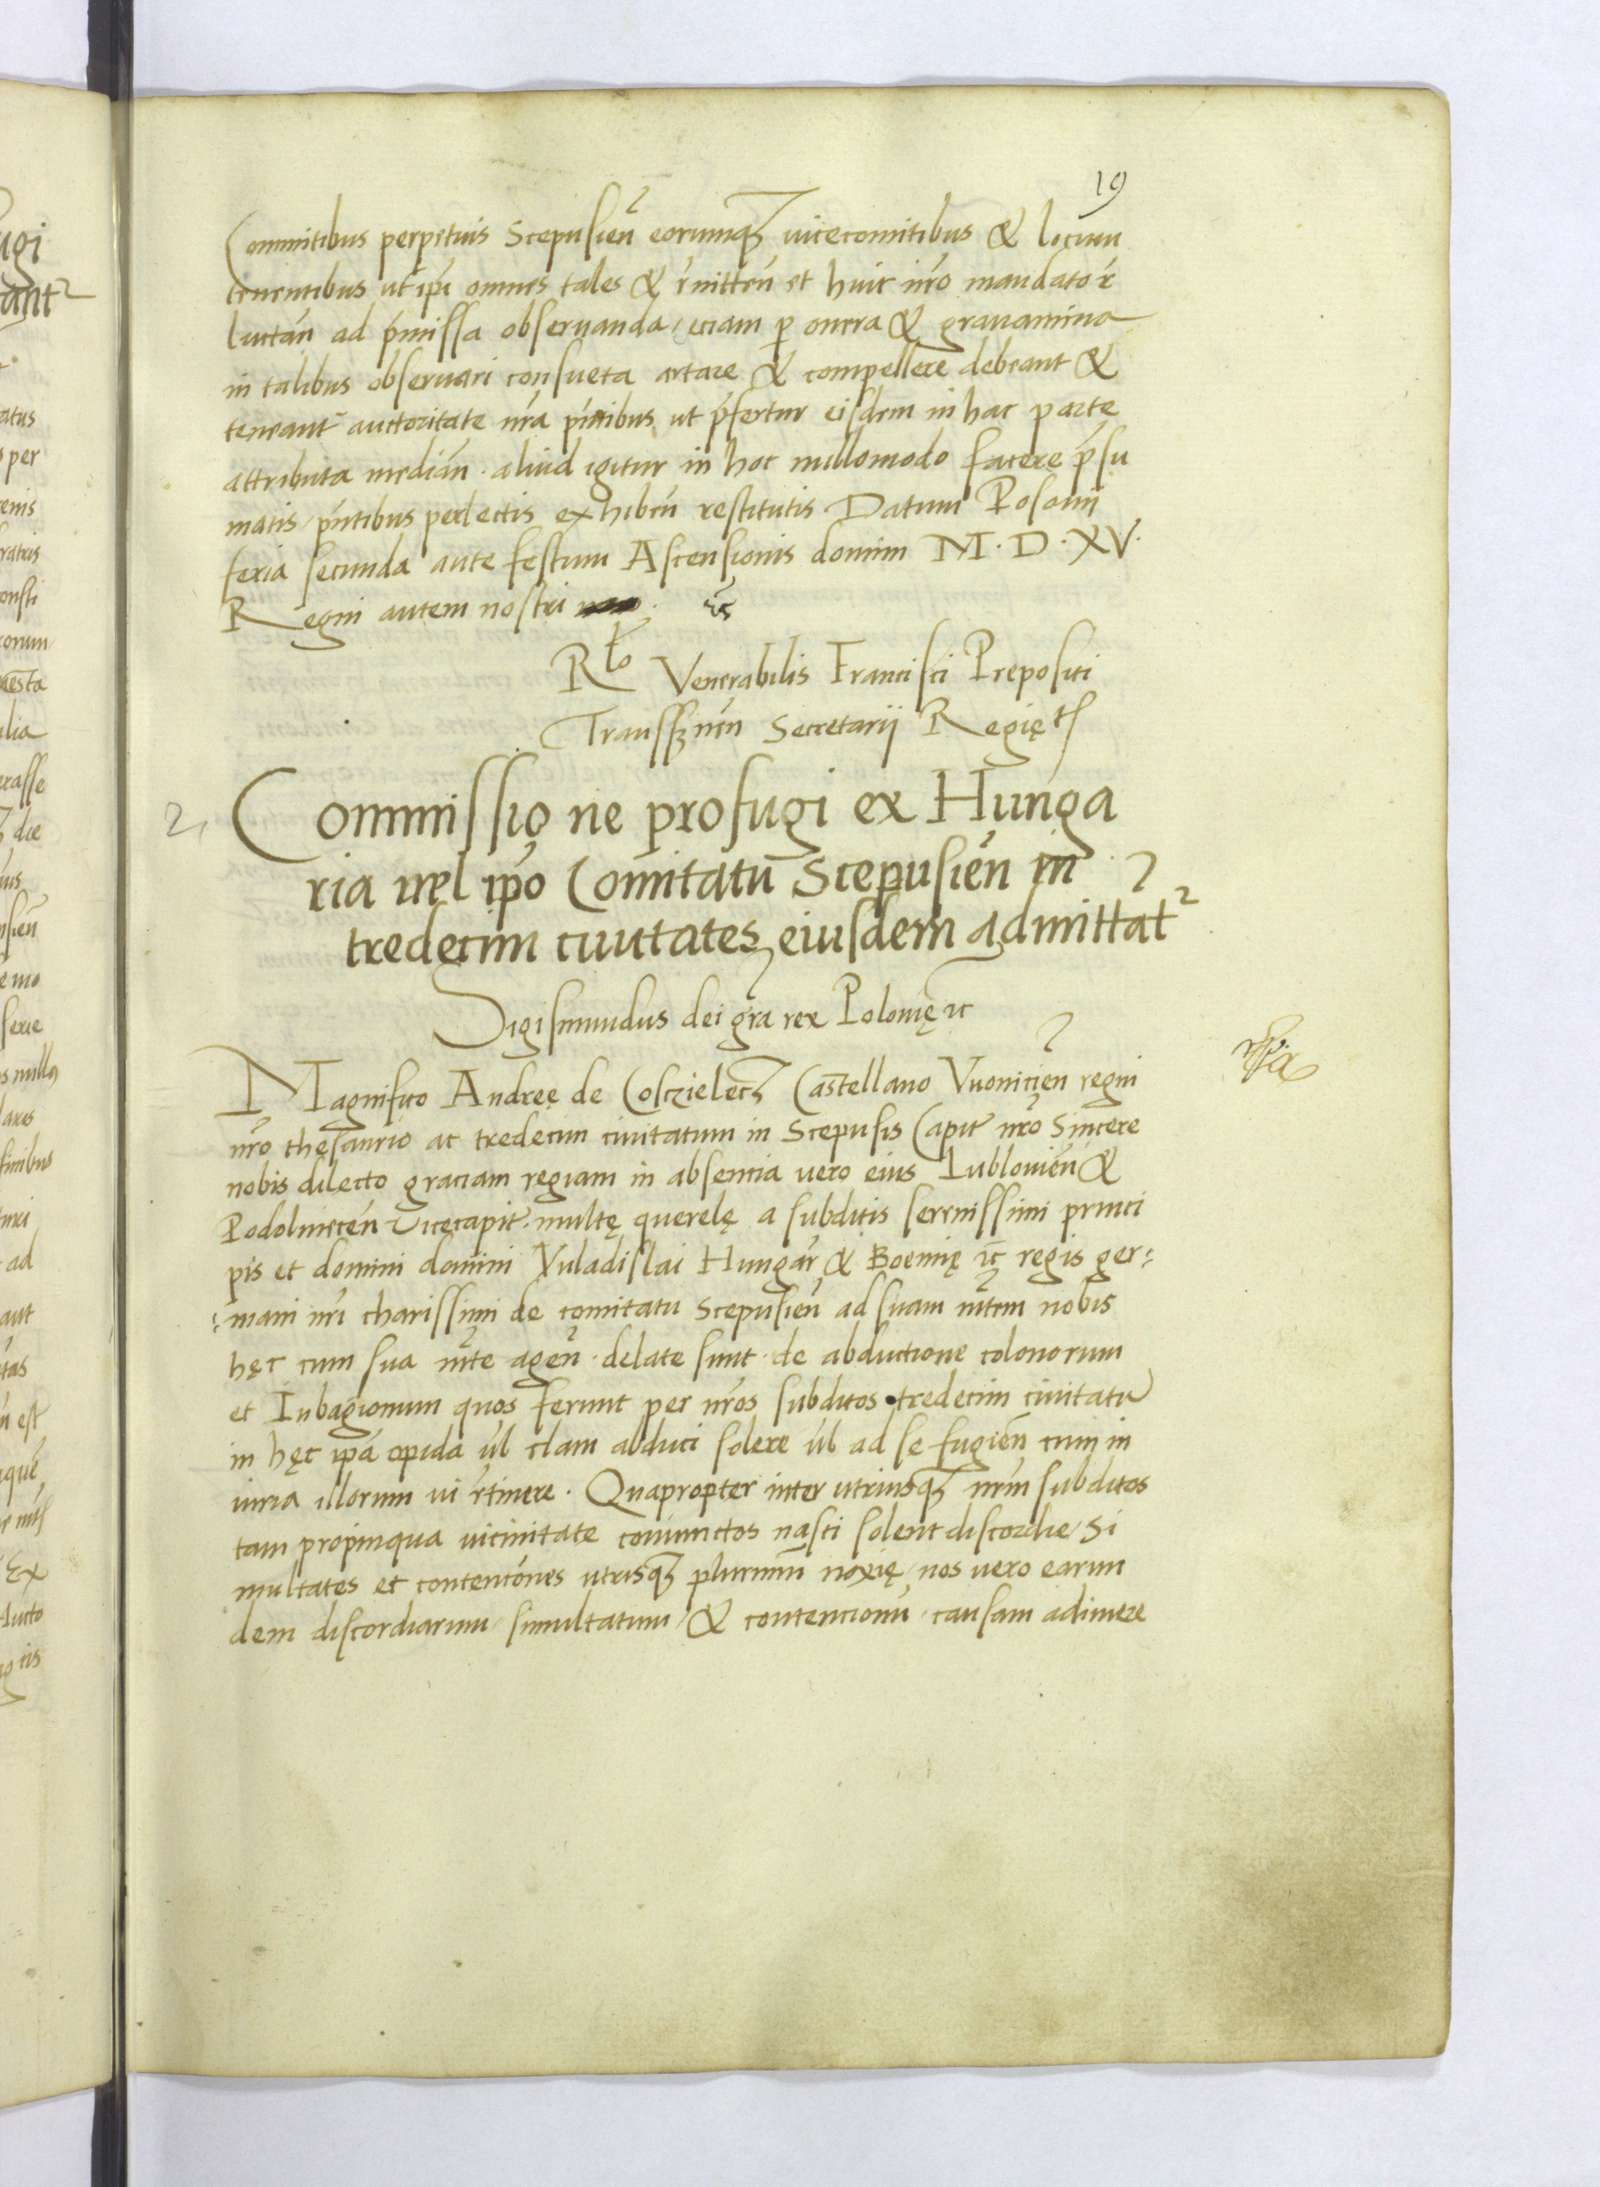 19
Committibus perpetuis Scepusien̄ eorumqꝫ vicecomitibus & locum
tenentibus ut ip̄i omnes tales & r̄nitten̄ et huic nr̄o mandato r̄
luctan̄ ad p̄missa obseruanda, eciam ꝑ onera & grauamina
in talibus obseruari consueta artare & compellere debeant &
teneant auctoritate nr̄a pn̄tibus ut p̄fertur eisdem in hac parte
attributa median̄. aliud igitur in hoc nullomodo facere p̄su
matis, pn̄tibus perlectis exhiben̄ restitutis Datum Posonii
feria secunda ante festum Ascensionis domini M.D.XV.
Regni autem nostri
Rlo Venerabilis Francisci Prepositi
Secretarii Regię
2, Commissio ne profugi ex Hunga
ria uel ip̄o Comitatu Scepusien̄ in
tredecim ciuitates eiusdem admittat2
Sigismundus dei gr̄a rex Polonię ꝛc
Magnifico Andreę de Coschielecꝫ Castellano Vuonicien̄ regni
nr̄o thesaurio ac tredecim ciuitatum in Scepusis Capit̄ nr̄o Sincere
nobis dilecto graciam regiam in absencia vero eius Lublouien̄ &
Podolinecen̄ Vicecapit̄. multę querelę a subditis serenissimi princi
pis et domini domini Vuladislai Hungar̄ & Boemię ꝛc̄ regis ger-
mani nr̄i charissimi de comitatu Scepusien̄ ad suam mt̄em nobis
hęc cum sua mt̄e agen̄. delate sunt. de abductione colonorum
et Iubagionum quos ferunt per nr̄os subditos tredecim ciuitatū
in hęc ip̄a opida ul̄ clam abduci solere ul̄ ad se fugien̄ cum in
iuria illorum ui r̄tinere. Quapropter inter utriusqꝫ nr̄m subditos
tam propinqua vicinitate coniunctos nasci solent discordie, Si
multates et contenciones utrisqꝫ plurimum noxię, nos vero earun
dem discordiarum, simultatum, & contencionū, causam adimere